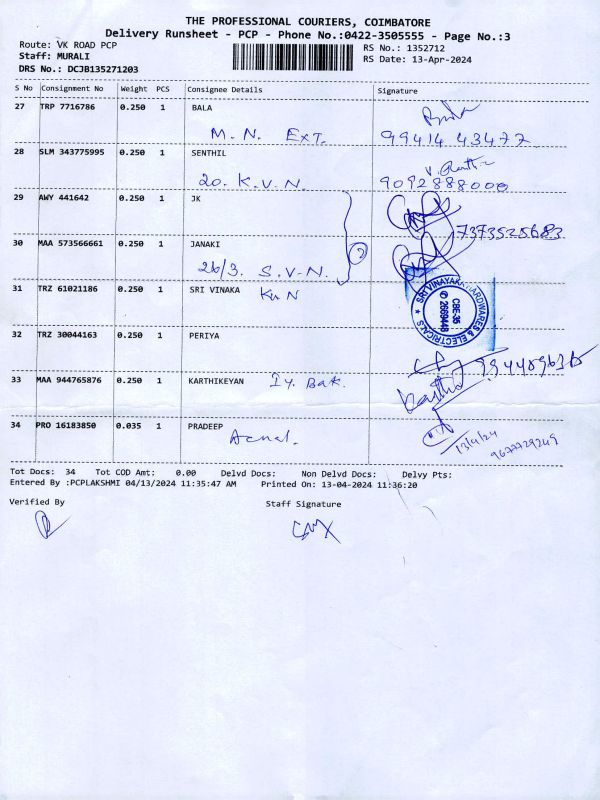 THE PROFESSIONAL COURIERS, COIMBATORE
Delivery Runsheet - PCP - Phone No.:0422-3505555 - Page No.:3
Route: VK ROAD PCP
RS No.: 1352712
Staff: MURALI
RS Date: 13-Apr-2024
DRS No.: DCJB135271203
S No Consignment No Weight PCS Consignee Details Signature
27 TRP 7716786 0.250 1 BALA
M. N. EXT. 99414 43477
28 SLM 343775995 0.250 1 SENTHIL
20. K.V.N. 9092888000
29 AWY 441642 0.250 1 JK
7373525683
30 MAA 573566661 0.250 1 JANAKI
2
26/3. S.V-N.
31 TRZ 61021186 0.250 1 SRI VINAKA
KUN
SRI VINAYAKA HARDWARES & ELECTRICALS ★
CBE-35
✆ 2669448
32 TRZ 30044163 0.250 1 PERIYA
33 MAA 944765876 0.250 1 KARTHIKEYAN
34 PRO 16183850 0.035 1 PRADEEP
13/4/24
9677729249
Tot Docs: 34 Tot COD Amt: 0.00 Delvd Docs: Non Delvd Docs: Delvy Pts:
Entered By :PCPLAKSHMI 04/13/2024 11:35:47 AM Printed On: 13-04-2024 11:36:20
Verified By Staff Signature